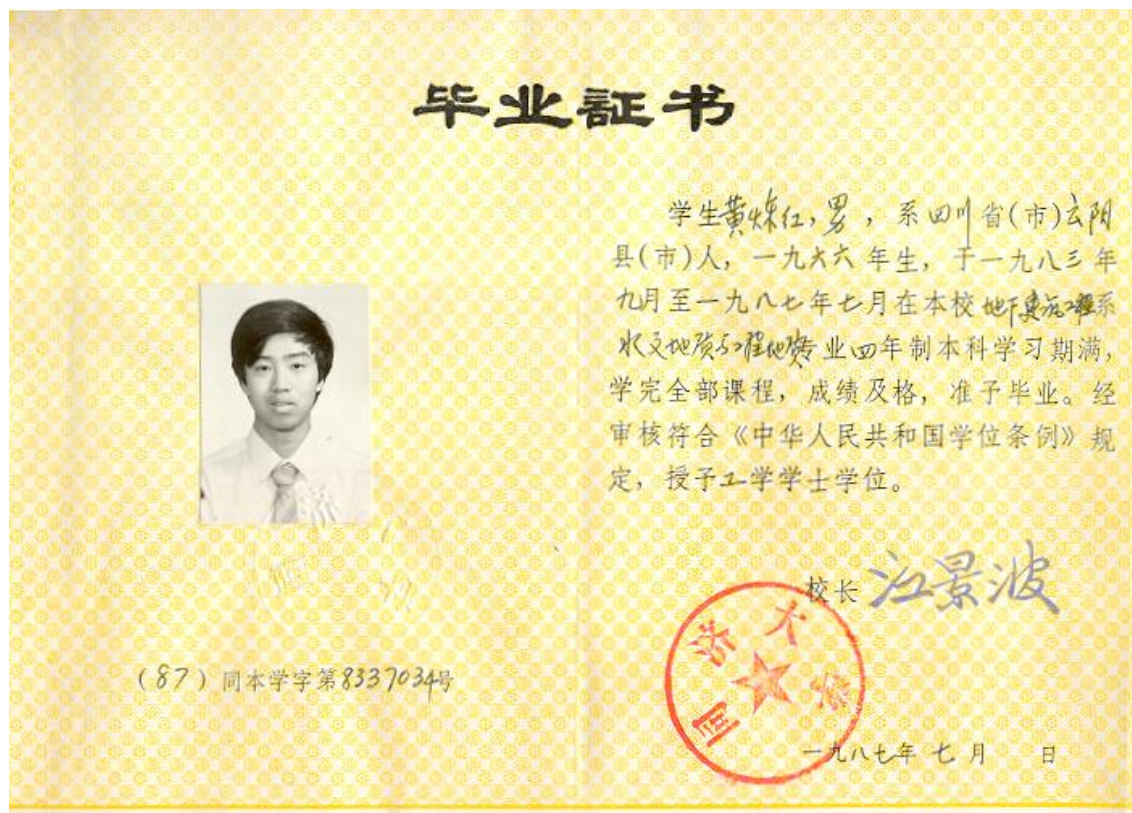 毕业証书
学生黄炜红，男，系四川省(市)云阳
县(市)人，一九六六年生，于一九八三年
九月至一九八七年七月在本校地下建筑工程系
水文地质与工程地质专业四年制本科学习期满，
学完全部课程，成绩及格，准予毕业。经
审核符合《中华人民共和国学位条例》规
定，授予工学学士学位。
校长 江景波
同济大学
(87) 同本学字第8337034号
一九八七年七月 日